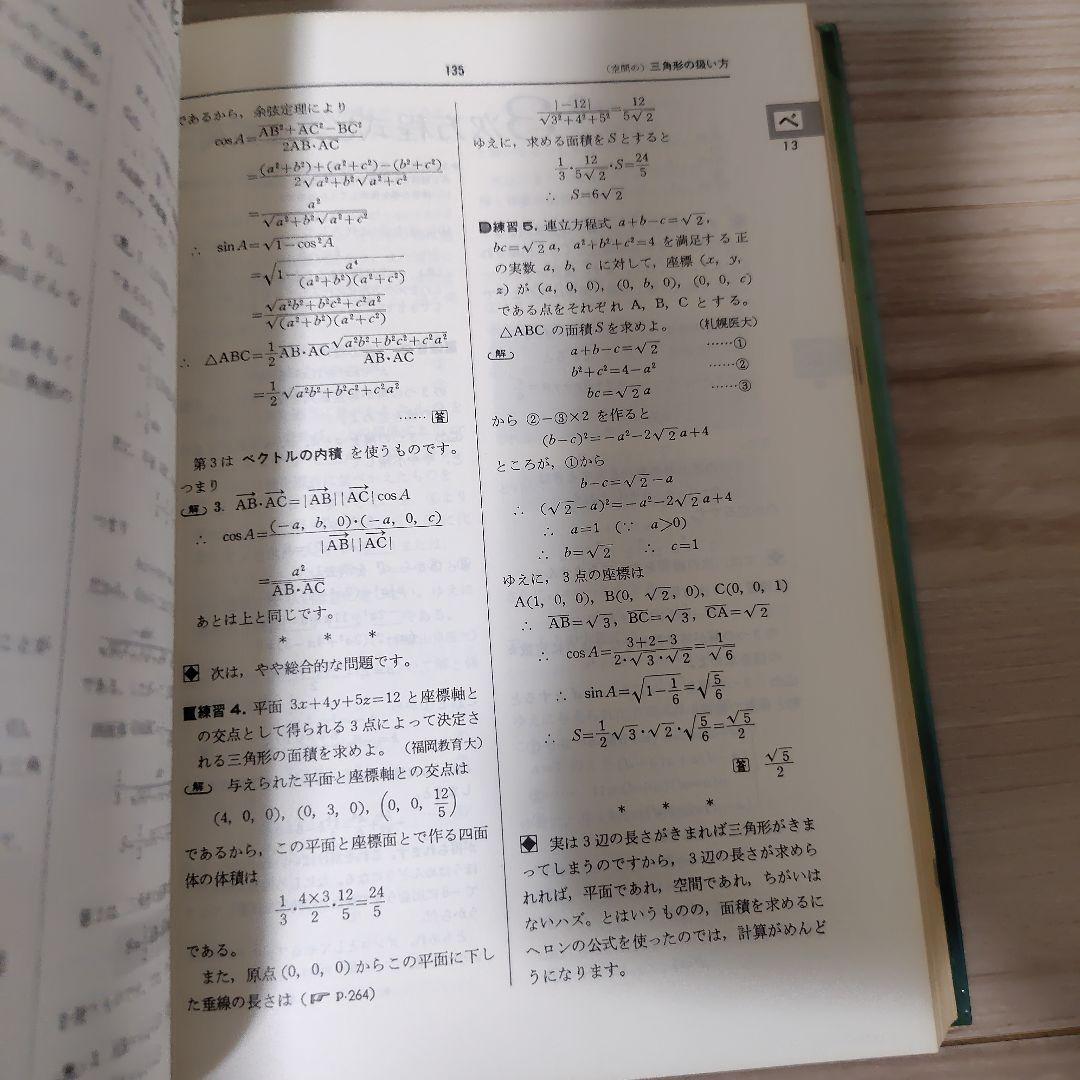 135
(空間の) 三角形の扱い方
ベ
13
であるから，余弦定理により
cosA=(AB²+AC²−BC²)/(2AB·AC)
=((a²+b²)+(a²+c²)−(b²+c²))/(2√(a²+b²)√(a²+c²))
=a²/(√(a²+b²)√(a²+c²))
∴ sinA=√(1−cos²A)
=√(1−a⁴/((a²+b²)(a²+c²)))
=√(a²b²+b²c²+c²a²)/√((a²+b²)(a²+c²))
∴ △ABC=1/2 AB·AC √(a²b²+b²c²+c²a²)/(AB·AC)
=1/2 √(a²b²+b²c²+c²a²)
……答
第3は ベクトルの内積 を使うものです。
つまり
解 3. AB·AC=|AB||AC|cosA
∴ cosA=((−a, b, 0)·(−a, 0, c))/(|AB||AC|)
=a²/(AB·AC)
あとは上と同じです。
* * *
◆ 次は，やや総合的な問題です。
練習 4. 平面 3x+4y+5z=12 と座標軸と
の交点として得られる3点によって決定さ
れる三角形の面積を求めよ。 (福岡教育大)
解 与えられた平面と座標軸との交点は
(4, 0, 0), (0, 3, 0), (0, 0, 12/5)
であるから，この平面と座標面とで作る四面
体の体積は
1/3·(4×3)/2·12/5=24/5
である。
また，原点 (0, 0, 0) からこの平面に下し
た垂線の長さは (☞ p.264)
|−12|/√(3²+4²+5²)=12/(5√2)
ゆえに，求める面積をSとすると
1/3·12/(5√2)·S=24/5
∴ S=6√2
練習 5. 連立方程式 a+b−c=√2,
bc=√2 a, a²+b²+c²=4 を満足する正
の実数 a, b, c に対して，座標 (x, y,
z) が (a, 0, 0), (0, b, 0), (0, 0, c)
である点をそれぞれ A, B, C とする。
△ABC の面積Sを求めよ。 (札幌医大)
解 a+b−c=√2 ……①
b²+c²=4−a² ……②
bc=√2 a ……③
から ②−③×2 を作ると
(b−c)²=−a²−2√2 a+4
ところが，①から
b−c=√2−a
∴ (√2−a)²=−a²−2√2 a+4
∴ a=1 (∵ a>0)
∴ b=√2 ∴ c=1
ゆえに，3点の座標は
A(1, 0, 0), B(0, √2, 0), C(0, 0, 1)
∴ AB=√3, BC=√3, CA=√2
∴ cosA=(3+2−3)/(2·√3·√2)=1/√6
∴ sinA=√(1−1/6)=√(5/6)
∴ S=1/2 √3·√2·√(5/6)=√5/2
答 √5/2
* * *
◆ 実は3辺の長さがきまれば三角形がきま
ってしまうのですから，3辺の長さが求めら
れれば，平面であれ，空間であれ，ちがいは
ないハズ。とはいうものの，面積を求めるに
ヘロンの公式を使ったのでは，計算がめんど
うになります。